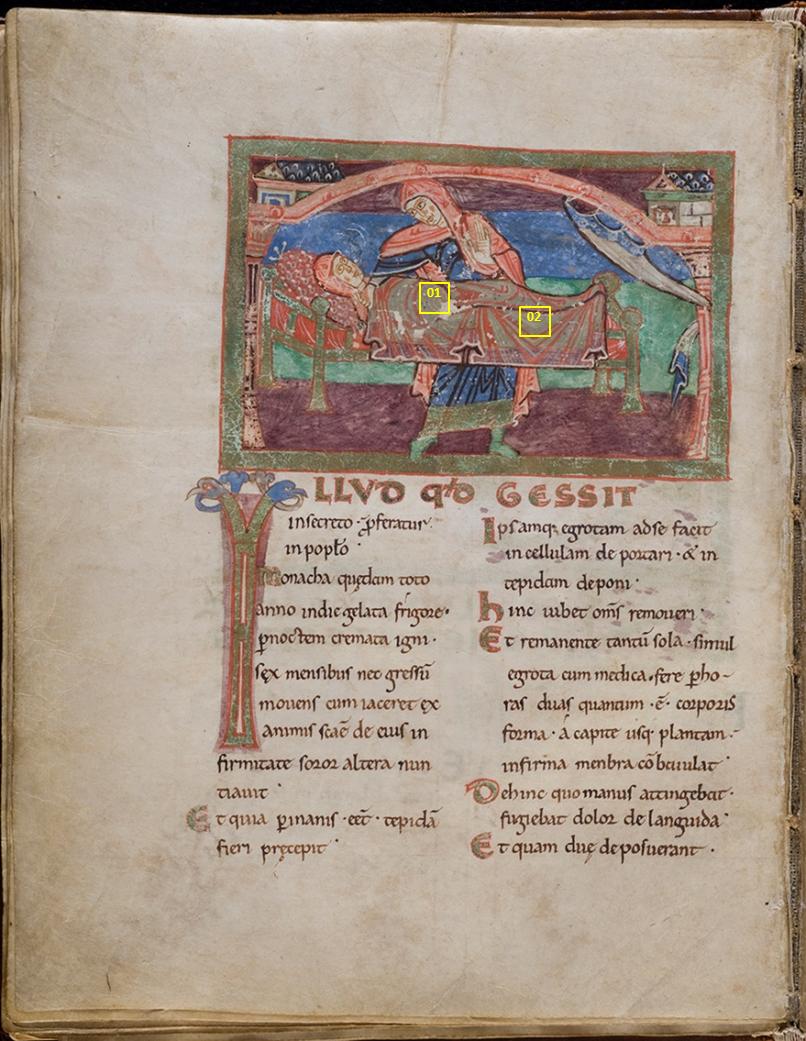 01
02
ILLVD qđ GESSIT
in secreto · ꝓferatur
in poplo ·
Monacha quędam toto
anno indie gelata frigore ·
ꝑnoctem cremata igni ·
sex mensibus nec gressū
mouens cum iaceret ex
animis scae de eius in
firmitate soror altera nun
tiauit ·
Et quia ꝑinanis · eēt · tepidā
fieri pręcepit ·
Ipsamq; egrotam adse facit
in cellulam de portari · & in
tepidam deponi ·
hinc iubet oms remoueri ·
Et remanente tantū sola · simul
egrota cum medica · fere ꝑ ho-
ras duas quantum · ē · corporis
forma · a capite usq; plantam ·
infirma menbra cōbaiulat ·
Dehinc quo manus attingebat ·
fugiebat dolor de languida ·
Et quam duę deposuerant ·